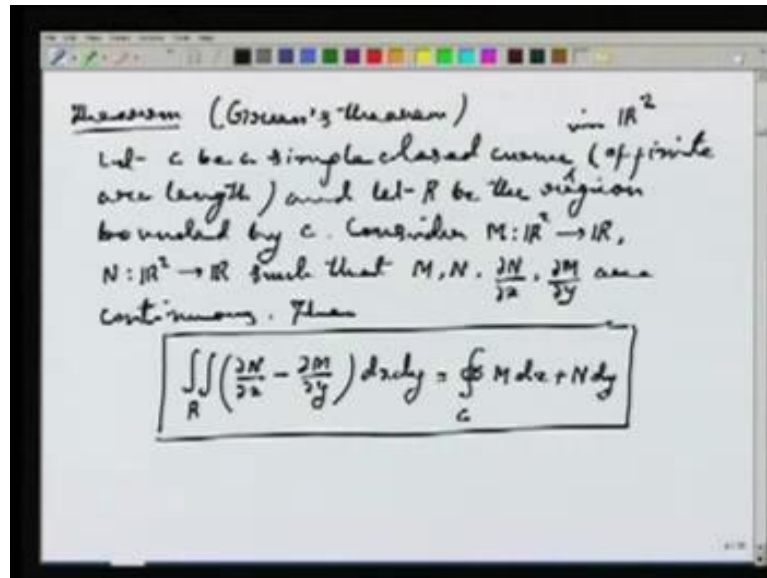 Theorem (Green's theorem)
Let c be a simple closed curve (of finite in ℝ²
arc length) and let R be the region
bounded by c. Consider M: ℝ² → ℝ,
N: ℝ² → ℝ such that M, N, ∂N/∂x, ∂M/∂y are
continuous. Then
∬_R (∂N/∂x − ∂M/∂y) dxdy = ∮_C M dx + N dy